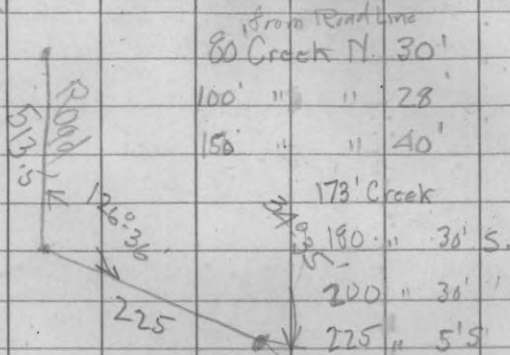 from Road Line
80 Creek N. 30'
100' " " 28'
150 " " 40'
173' Creek
180 " 30' S.
200 " 30' '
225 " 5' S
Road
513.5
126°:36
34°:35
225